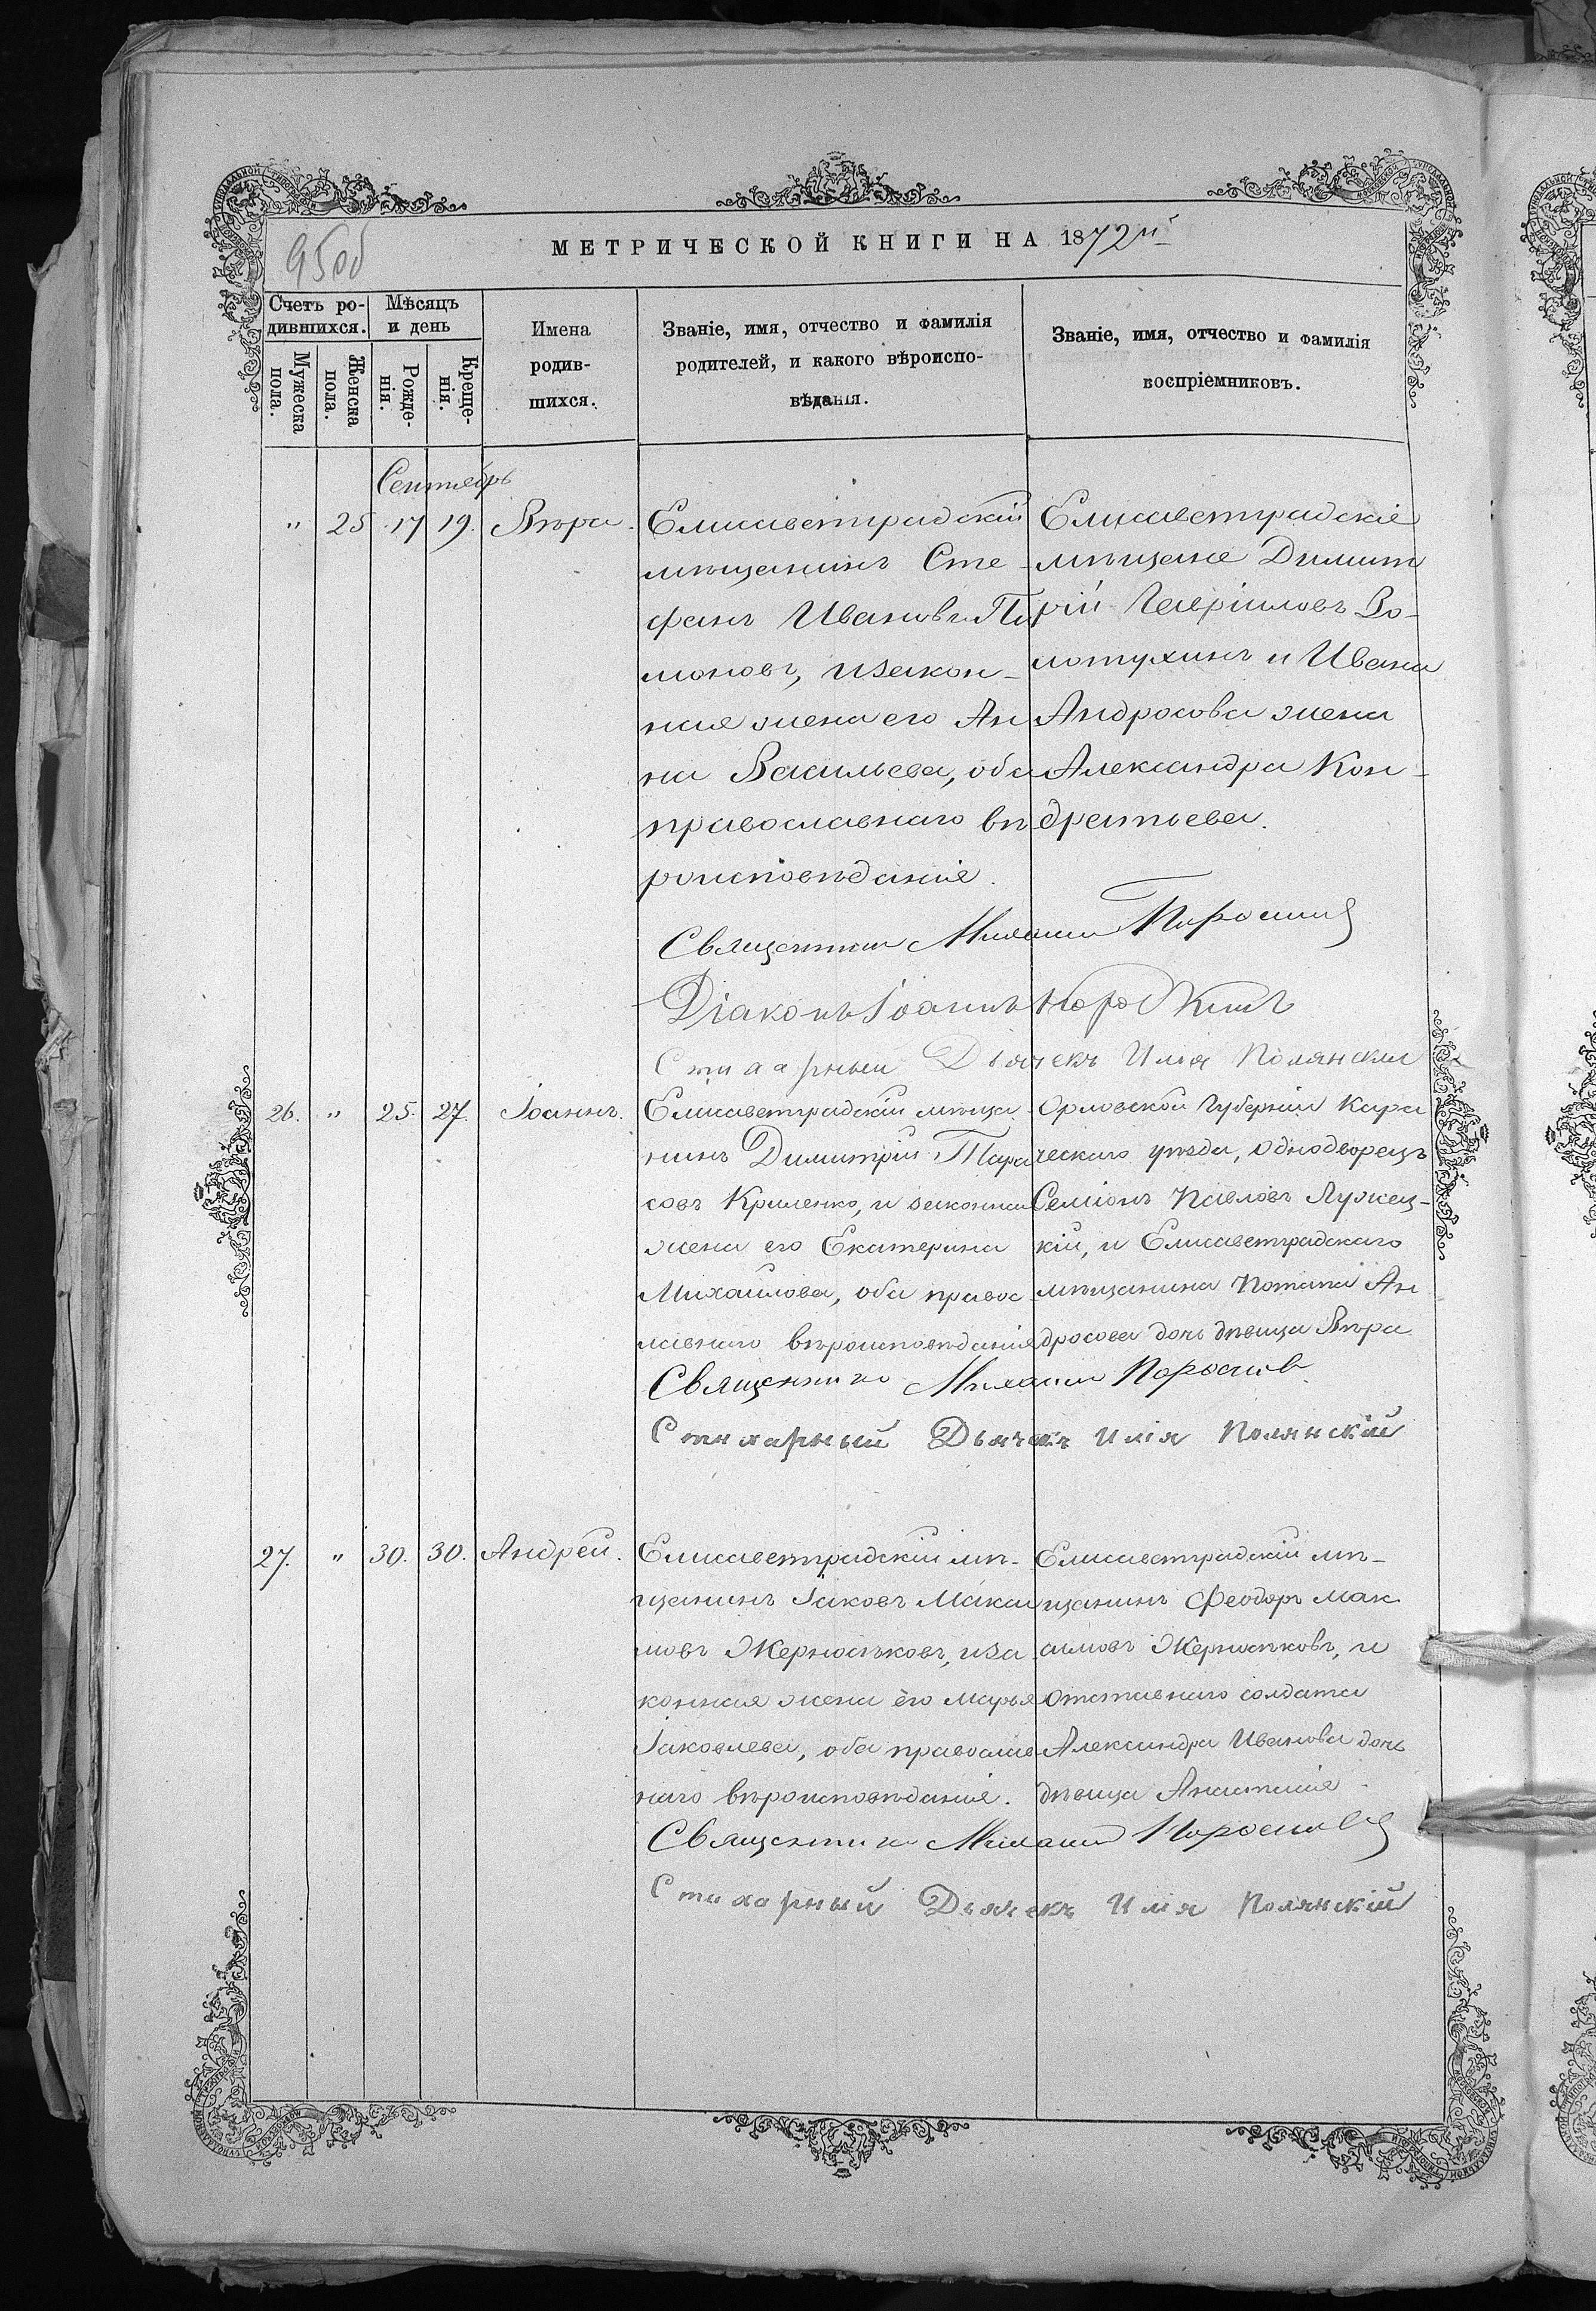 МЕТРИЧЕСКОЙ КНИГИ НА 1872й
Счетъ ро-
дившихся.
Мужеска
пола.
Женска
пола.
Мѣсяцъ
и день
Рожде-
нія.
Креще-
нія.
Имена
родив-
шихся.
Званіе, имя, отчество и фамилія
родителей, и какого вѣроиспо-
вѣданія.
Званіе, имя, отчество и фамилія
воспріемниковъ.
Сентябрь
" 25 17 19. Вѣра.
Елисаветградскій
мѣщанинъ Сте-
фанъ Ивановъ
моновъ, и закон-
ная жена его Ан
на Васильева, оба
православнаго вѣ
роисповѣданія.
Елисаветградскіе
мѣщане Димит
рій Гавріиловъ Зо-
лотухинъ и Ивана
Андросова жена
Александра Кон-
дратьева.
Священникъ Михаилъ
Діаконъ Іоаннъ
Стихарный Дьячекъ Илія Полянскій
26. " 25. 27. Іоаннъ.
Елисаветградскій мѣща
нинъ Димитрій Тара
совъ Криленко, и законная
жена его Екатерина
Михайлова, оба правос
лавнаго вѣроисповѣданія
Орловской Губерніи Кара
ческаго уѣзда, Однодворецъ
Семіонъ Павловъ Лужец-
кій, и Елисаветградскаго
мѣщанина Потапа Ан
дросова дочь дѣвица Вѣра
Священникъ Михаилъ
Стихарный Дьячекъ Илія Полянскій
27. " 30. 30. Андрей.
Елисаветградскій мѣ-
щанинъ Іаковъ Макси
мовъ Жерноснковъ, и за
конная жена его Марья
Іаковлева, оба православ
наго вѣроисповѣданія.
Елисаветградскій мѣ-
щанинъ Феодоръ Мак
симовъ и
отставнаго солдата
Александра Иванова дочь
дѣвица Анастасія
Священникъ Михаилъ
Стихарный Дьячекъ Илія Полянскій